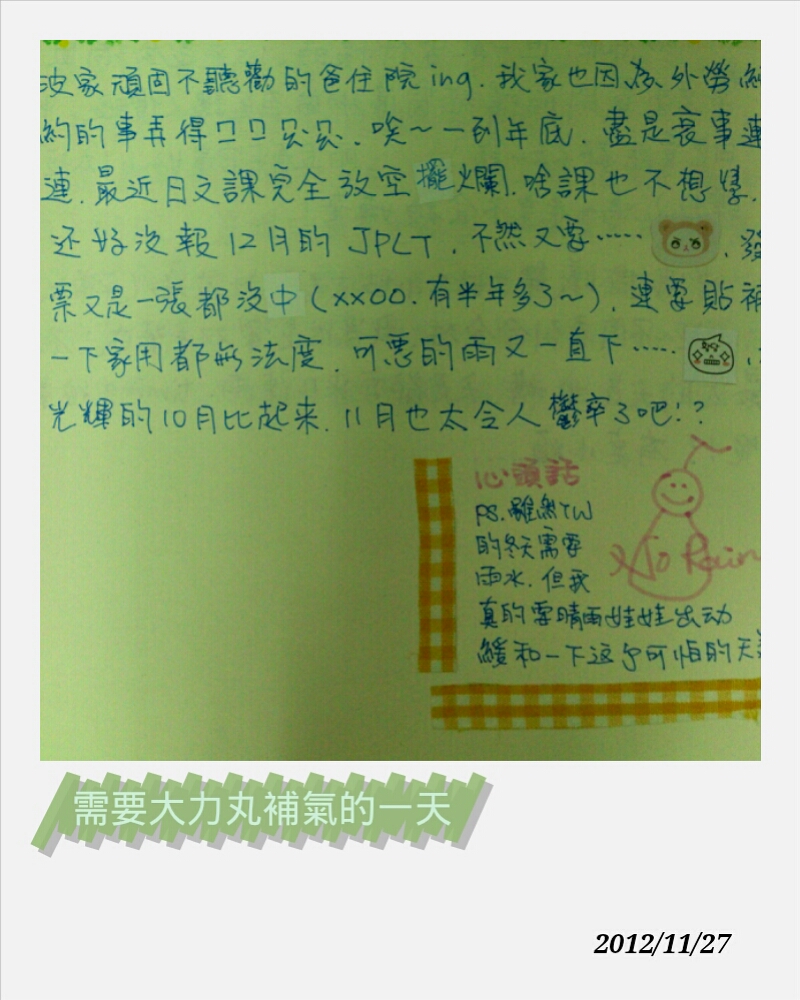 波家頑固不聽勸的爸住院ing.我家也因為外勞
約的事弄得ㄇㄇㄙㄙ.唉～一到年底.盡是衰事連
連.最近日文課完全放空擺爛.啥課也不想學.
还好沒報12月的JPLT.不然又要…….發
票又是一張都沒中(xx00.有半年多了～).連要貼補
一下家用都無法度.可惡的雨又一直下……
光輝的10月比起來.11月也太令人鬱卒了吧!?
心頭話
PS.雖然TW
的冬天需要
雨水.但我
真的要晴雨娃娃出动
緩和一下這ㄗ可怕的天
No Rain
需要大力丸補氣的一天
2012/11/27